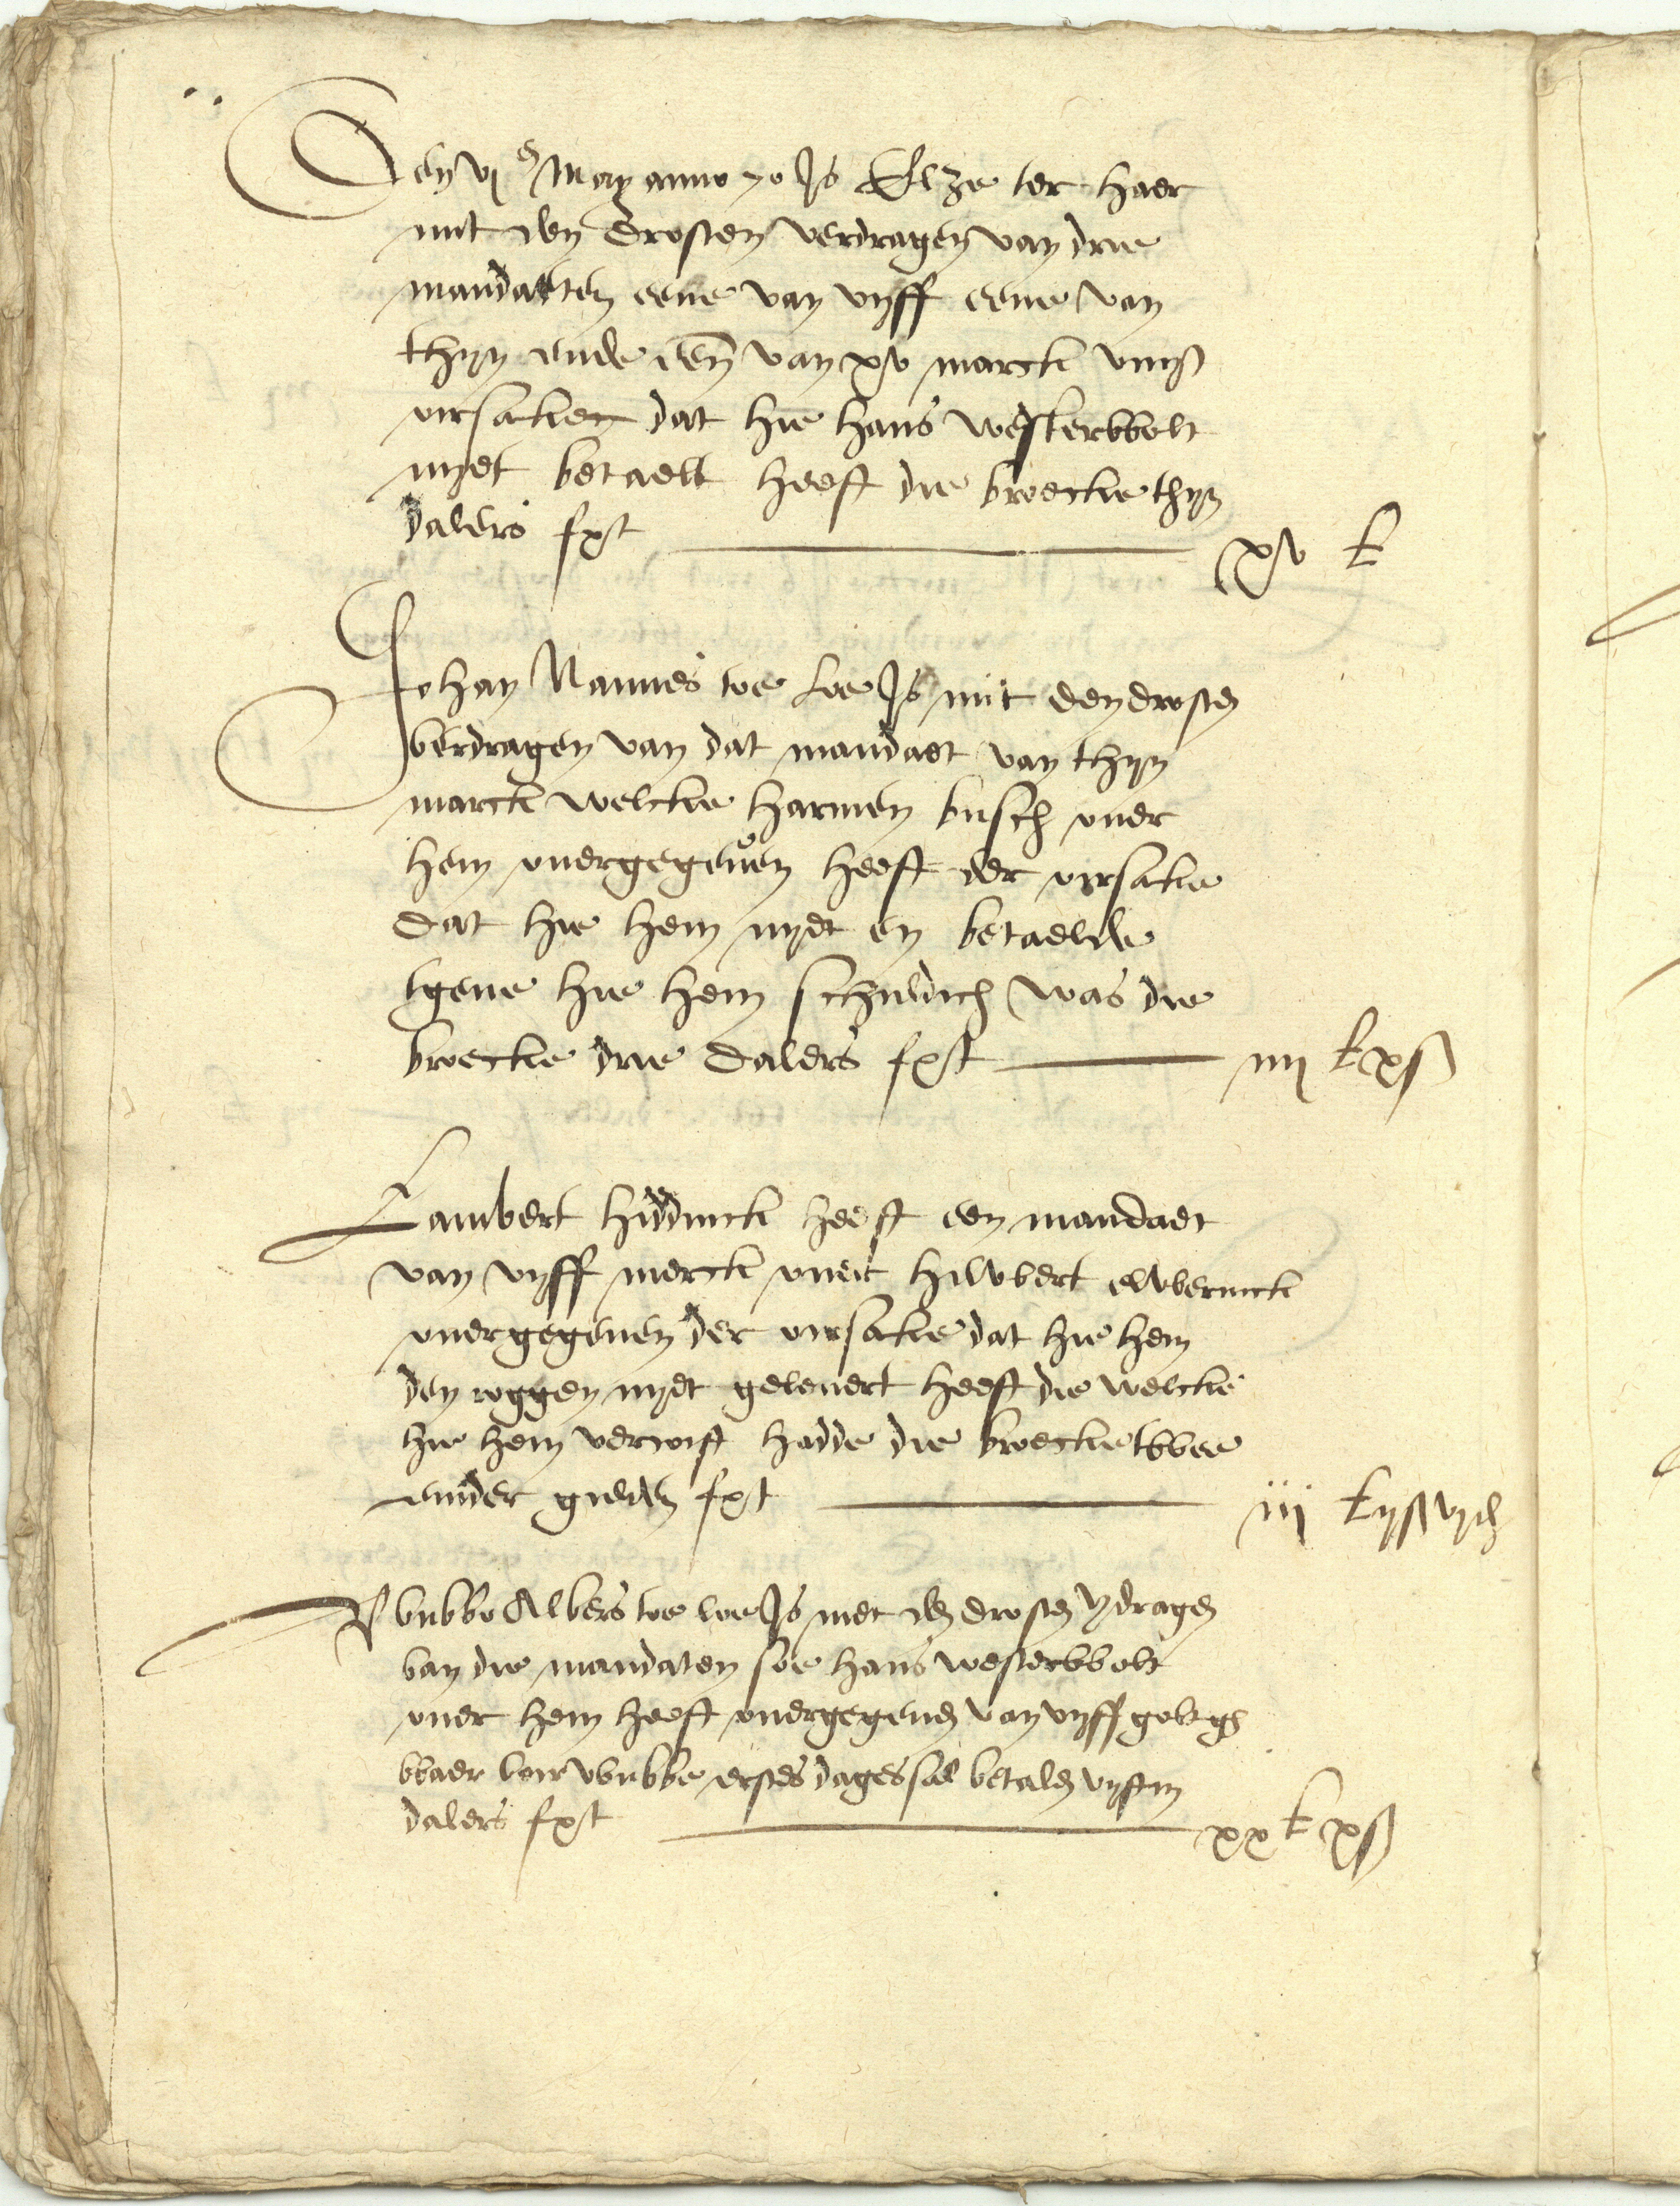 Den vj en May anno 70 Js Elze ter Haer
mit den Drosten verdragen van drie
mandaeten eene van vyff eene van
thyn ende een van xv marck
oirsake dat hie Hans Westerwolt
nyet betaelt heeft die broecke thyn
dalers fxt xv k
Johan Nannes toe Loe Js mit den drosten
verdragen van dat mandaet van thyn
marck welcke Harmen Busch over
hem overgegeven heeft der oirsake
dat hie hem nyet en betaelde
tgene hie hem schuldich was die
broecke drie dalers fxt iiij k x ß
Lambert Hiddinck heeft een mandaet
van vyff merck over Hilbbert
overgegeven der oirsake dat hie hem
den roggen nyet gelevert heeft die welcke
hie hem vercoft hadde die broecke twee
ender gulden fxt iij k ij ß vj ch
Wubbo Albers toe loe Js met den drosten vdragen
van die mandaten soe Hans Westerwolt
over hem heeft overgegeven van vyff
waer voir Wubbe erstes dages sal betalen
dalers fxt xx k x ß